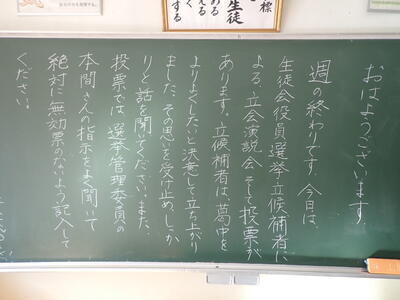 標
生徒
える
ある
く
する
おはようございます。
週の終わりです。今日は、
生徒会役員選挙立候補者に
よる、立会演説会そして投票が
あります。立候補者は、葛中を
よりよくしたいと決意して立ち上がり
ました。その思いを受け止め、しっか
りと話を聞いてください。また、
投票では、選挙管理委員の
本間さんの指示をよく聞いて
絶対に無効票のないよう記入して
ください。